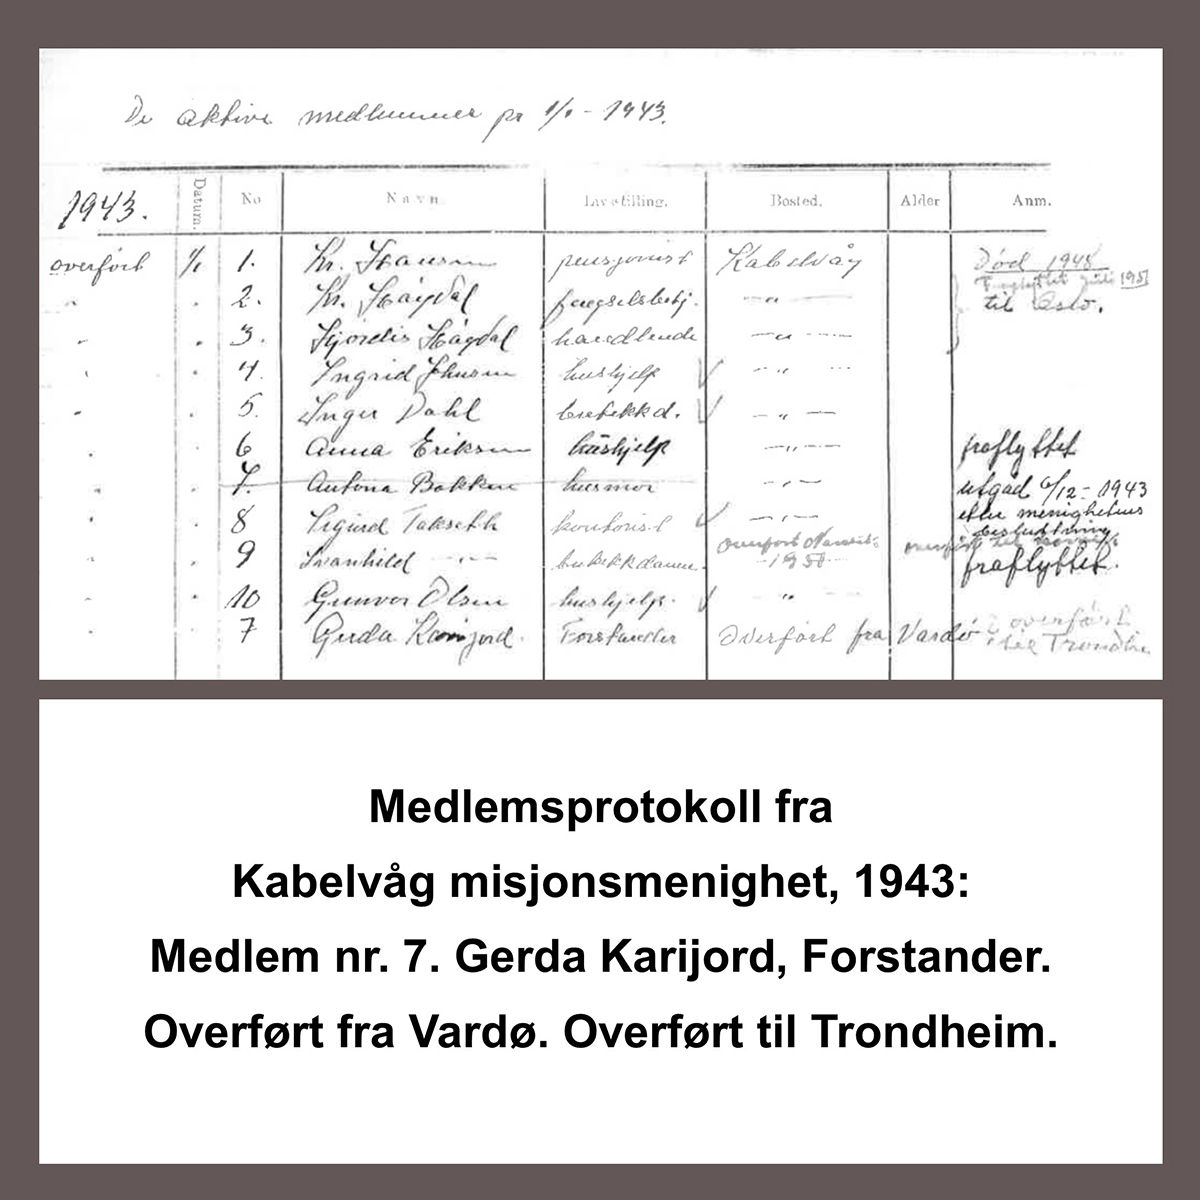 De aktive medlemmer pr 1/1 - 1943.
1943. Datum. No Navn. Livsstilling. Bosted. Alder Anm.
overført 1/1 1. Kr. Hansen pensjonist Kabelvåg Død 1948
" " 2. Kr. Hågdal fengselsbetj. — " — Fraflyttet juli 1951
til Oslo.
" " 3. Hjørdis Hågdal handlende — " —
" " 4. Ingrid hushjelp ✓ " "
" " 5. Inger Dahl ✓ — " —
" " 6 Anna Eriksen hushjelp — " — fraflyttet
" " 7. Antona Bakken husmor — " — utgåd 6/12 - 1943
etter menighetens
beslutning
" " 8 Sigurd Takseth kontorist ✓ — " —
" " 9 Svanhild — " — overført
1951 fraflyttet.
" " 10 Gunvor Olsen hushjelp. ✓ "
" 7 Gerda Karijord. Forstander Overført fra Vardø overført
til Trondheim
Medlemsprotokoll fra
Kabelvåg misjonsmenighet, 1943:
Medlem nr. 7. Gerda Karijord, Forstander.
Overført fra Vardø. Overført til Trondheim.